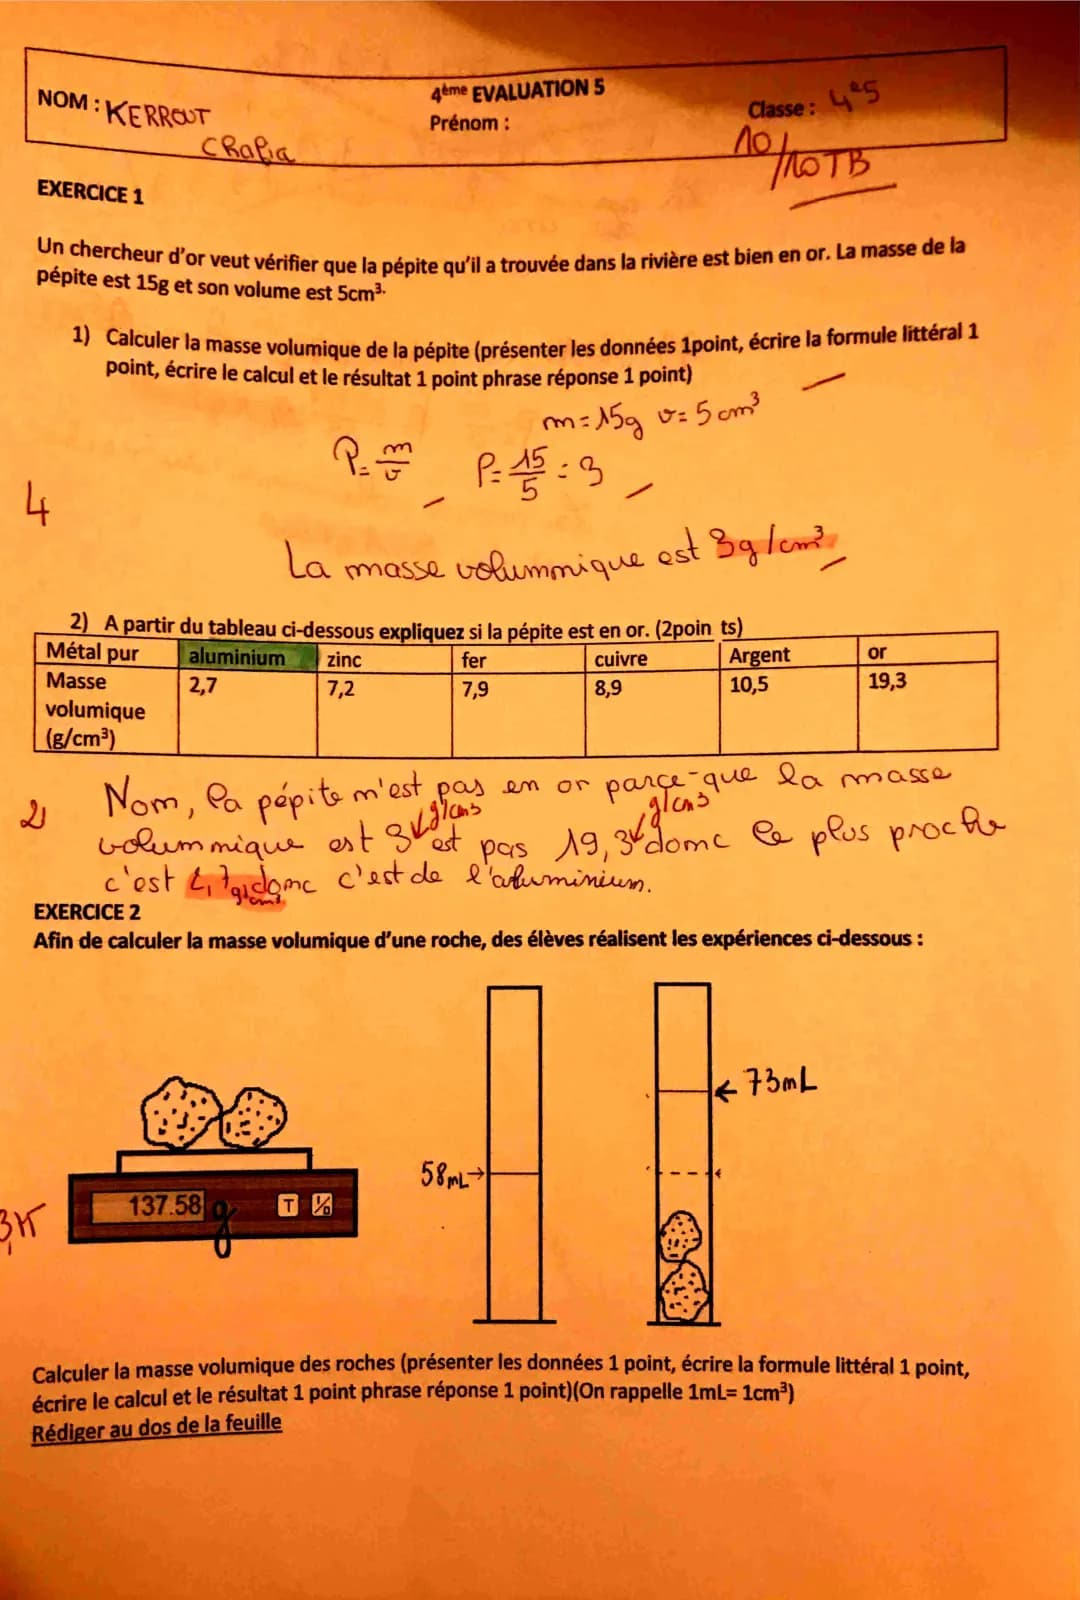 4ème EVALUATION 5
NOM : KERROUT
Prénom :
Classe : 4e5
Chafia
10/10 TB
EXERCICE 1
Un chercheur d'or veut vérifier que la pépite qu'il a trouvée dans la rivière est bien en or. La masse de la
pépite est 15g et son volume est 5cm³.
1) Calculer la masse volumique de la pépite (présenter les données 1point, écrire la formule littéral 1
point, écrire le calcul et le résultat 1 point phrase réponse 1 point)
m = 15g v = 5 cm³
P = m/v P = 15/5 = 3
4
La masse volummique est 3g/cm³
2) A partir du tableau ci-dessous expliquez si la pépite est en or. (2poin ts)
Métal pur aluminium zinc fer cuivre Argent or
Masse 2,7 7,2 7,9 8,9 10,5 19,3
volumique
(g/cm³)
2
Nom, la pépite m'est pas en or parce-que la masse
g/cm3 g/cm3
volummique est 3 est pas 19,3 domc le plus proche
c'est 2,7 g/cm3 domc c'est de l'aluminium.
EXERCICE 2
Afin de calculer la masse volumique d'une roche, des élèves réalisent les expériences ci-dessous :
← 73mL
58mL→
137.58 g T
Calculer la masse volumique des roches (présenter les données 1 point, écrire la formule littéral 1 point,
écrire le calcul et le résultat 1 point phrase réponse 1 point)(On rappelle 1mL= 1cm³)
Rédiger au dos de la feuille